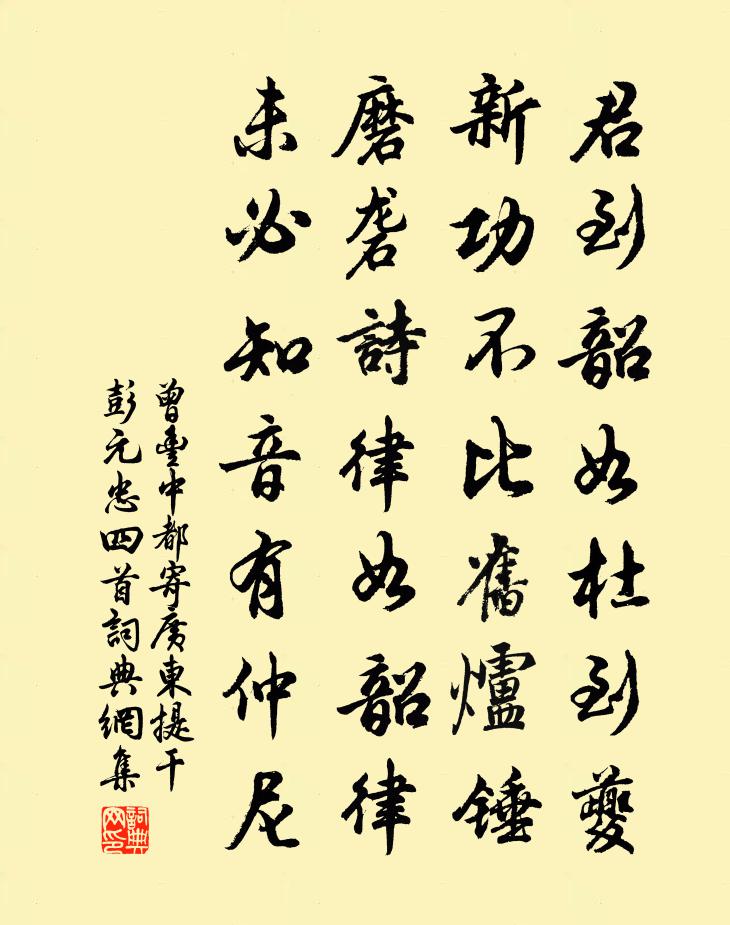 君到韶如杜到夔
新功不比舊爐錘
磨砻詩律如韶律
未必知音有仲尼
曾豐中都寄廣東提干
彭元忠四首詞典網集
詞典
网印